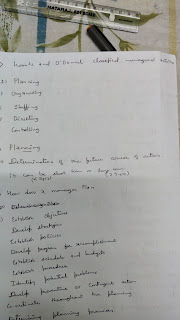 NATARAJ
Koontz and O'Donnel classified managerial
1) Planning
Organizing
Staffing
Directing
Controlling
Planning
Determination of the future course of action.
It can be short term or long
How does a manager plan
Establish objectives
Develop strategies
Establish policies
Develop program for accomplishment
Establish schedule and budgets
Establish procedures
Identify potential problems
Develop preventive or contingent action
Co-ordinate throughout the planning
Determining planning premises.